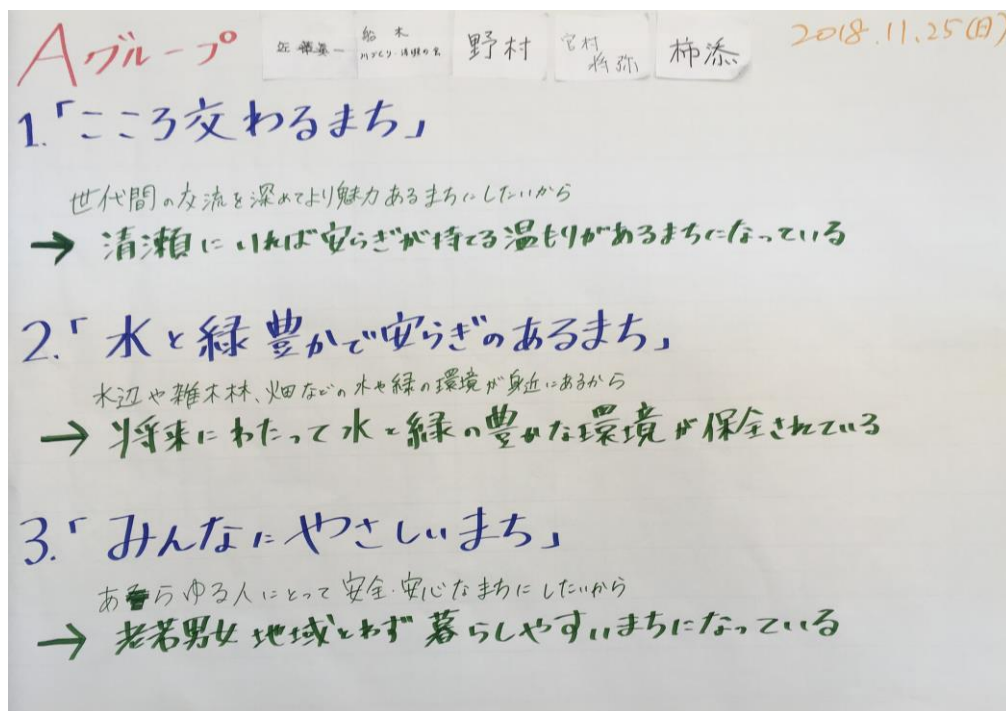 Aグループ
船木
川づくり・清瀬の会
野村
宮村
将弥
柿添
2018.11.25(日)
1.「こころ交わるまち」
世代間の交流を深めてより魅力あるまちにしたいから
→ 清瀬にいれば安らぎが持てる温もりがあるまちになっている
2.「水と緑豊かで安らぎのあるまち」
水辺や雑木林、畑などの水や緑の環境が身近にあるから
→ 将来にわたって水と緑の豊かな環境が保全されている
3.「みんなにやさしいまち」
あらゆる人にとって安全・安心なまちにしたいから
→ 老若男女地域とわず暮らしやすいまちになっている